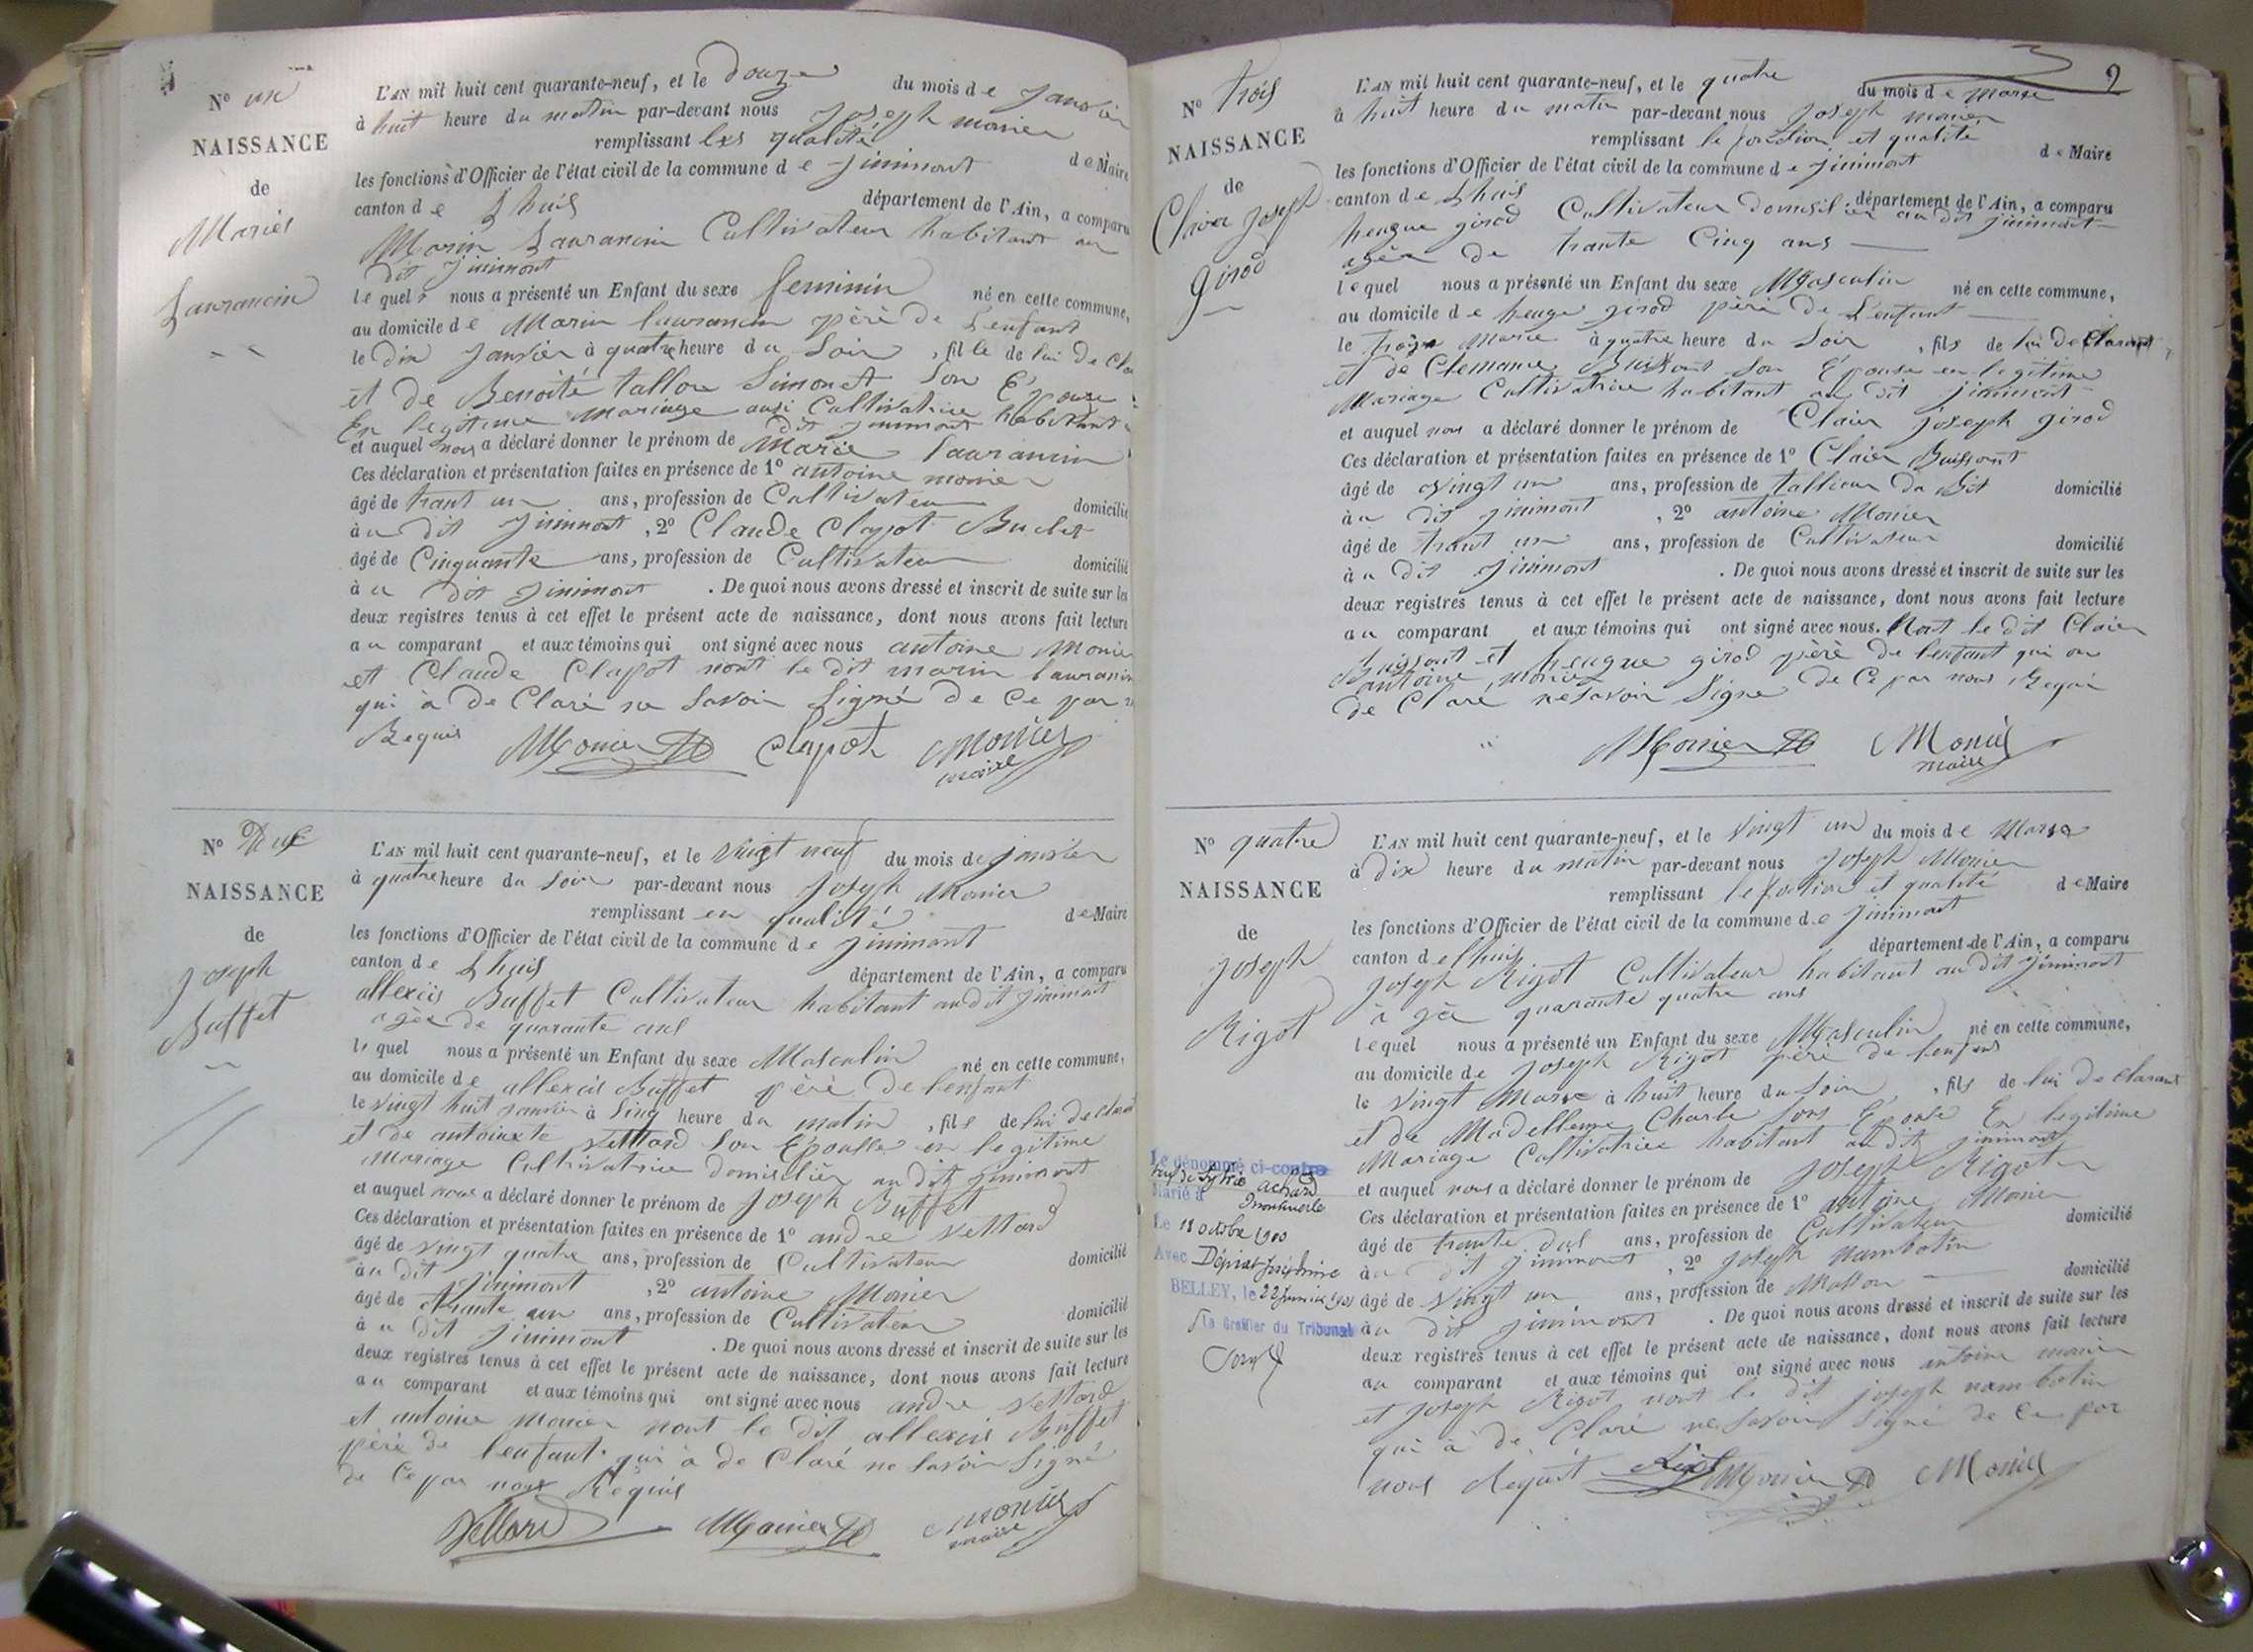 N° un
NAISSANCE
de
Marie
Laurancin
L'AN mil huit cent quarante-neuf, et le Douze du mois de Janvier
à huit heure du matin par-devant nous Joseph monier
remplissant les qualité de Maire
les fonctions d'Officier de l'état civil de la commune de jinimont
canton de Lhuis département de l'Ain, a comparu
Marin Laurancin Cultivateur habitant au
dit jinimont
lequel nous a présenté un Enfant du sexe feminin né en cette commune,
au domicile de Marin laurancin père de L'enfant
le dix Janvier à quatre heure du Soir , fille de lui De cla
et de Benoite tallon Simonet Son Epouze
En legitime Mariage ausi Cultivatrice habitant
dit jinimont
et auquel nous a déclaré donner le prénom de Marie laurancin
Ces déclaration et présentation faites en présence de 1° antoine monier
âgé de trant un ans, profession de Cultivateur domicilié
à u dit jinimont , 2° Claude Clapot Buclet
âgé de Cinquante ans, profession de Cultivateur domicilié
à u dit jinimont . De quoi nous avons dressé et inscrit de suite sur les
deux registres tenus à cet effet le présent acte de naissance, dont nous avons fait lecture
au comparant et aux témoins qui ont signé avec nous antoine Monier
et Claude Clapot nont le dit marin laurancin
qui à De Claré ne Savoir Signé de Ce par
Requis
Monier Clapot Monier
maire
N° Deux
NAISSANCE
de
Joseph
Buffet
L'AN mil huit cent quarante-neuf, et le Vingt neuf du mois de janvier
à quatre heure du Soir par-devant nous Joseph Monier
remplissant en qualité de Maire
les fonctions d'Officier de l'état civil de la commune de jinimont
canton de Lhuis département de l'Ain, a comparu
allexis Buffet Cultivateur habitant audit jinimont
agée de quarante ans
lequel nous a présenté un Enfant du sexe Masculin né en cette commune,
au domicile de allexis Buffet père de l'enfant
le Vingt huit janvier à Sinq heure du matin , fils de lui declarant
et de antoinete Vettard Son Epousse en legitime
Mariage Cultivatrice domiciliée au dit jinimont
et auquel nous a déclaré donner le prénom de Joseph Buffet
Ces déclaration et présentation faites en présence de 1° andre Vettard
âgé de vingt quatre ans, profession de Cultivateur domicilié
à u dit jinimont , 2° antoine Monier
âgé de trante un ans, profession de Cultivateur domicilié
à u dit jinimont . De quoi nous avons dressé et inscrit de suite sur les
deux registres tenus à cet effet le présent acte de naissance, dont nous avons fait lecture
au comparant et aux témoins qui ont signé avec nous andre Vettard
et antoine monier nont le dit allexis Buffet
père de l'enfant qui à de Claré ne Savoir Signé
de Ce par nous Requis
Vettard Monier Monier
maire
2
N° trois
NAISSANCE
de
Clair Joseph
girod
L'AN mil huit cent quarante-neuf, et le quatre du mois de marse
à huit heure du matin par-devant nous Joseph monier
remplissant le fonction et qualité de Maire
les fonctions d'Officier de l'état civil de la commune de jinimont
canton de Lhuis département de l'Ain, a comparu
heugue girod Cultivateur domicilier au dit jinimont
agée de trante Cinq ans
lequel nous a présenté un Enfant du sexe Masculin né en cette commune,
au domicile de heuge girod père de L'enfant
le troize Marse à quatre heure du Soir , fils de lui declarant
et de Clemance Buissont Son Épouse en legitime
Mariage Cultivatrice habitant au dit jinimont
et auquel nous a déclaré donner le prénom de Clair joseph girod
Ces déclaration et présentation faites en présence de 1° Clair Buissont
âgé de vingt un ans, profession de domicilié
à u dit jinimont , 2° antoine Monier
âgé de trant un ans, profession de Cultivateur domicilié
à u dit jinimont . De quoi nous avons dressé et inscrit de suite sur les
deux registres tenus à cet effet le présent acte de naissance, dont nous avons fait lecture
au comparant et aux témoins qui ont signé avec nous. Nont le dit Clair
Buissont et heugue girod père de l'enfant qui on
antoine monier
de Claré ne Savoir Signe de Ce par nous Requis
Monier Monier
maire
N° quatre
NAISSANCE
de
joseph
Rigot
L'AN mil huit cent quarante-neuf, et le vingt un du mois de Marse
à Dix heure du matin par-devant nous Joseph Monier
remplissant le fontion et qualité de Maire
les fonctions d'Officier de l'état civil de la commune de jinimont
canton de lhuis département de l'Ain, a comparu
joseph Rigot Cultivateur habitant au dit jinimont
à gée quarante quatre ans
lequel nous a présenté un Enfant du sexe Masculin né en cette commune,
au domicile de Joseph Rigot père de l'enfant
le Vingt Marse à huit heure du Soir , fils de lui declarant
et de Madelleine Charle Sons Épouse En legitime
Mariage Cultivatrice habitant au dit jinimont
et auquel nous a déclaré donner le prénom de Joseph Rigot
Ces déclaration et présentation faites en présence de 1° antoine Monier
âgé de trante ans, profession de Cultivateur domicilié
à u dit jinimont , 2° joseph nambotin
âgé de Vingt un ans, profession de Masson domicilié
à u dit jinimont . De quoi nous avons dressé et inscrit de suite sur les
deux registres tenus à cet effet le présent acte de naissance, dont nous avons fait lecture
au comparant et aux témoins qui ont signé avec nous antoine monier
et joseph Rigot nont le dit joseph nambotin
qui à de Claré ne Savoir Signé de Ce par
nous Requit Rigot Monier Monier
Le dénommé ci-contre
veuf de Sylvie achard
Marié à
Le 18 octobre 1900
Avec Joséphine
BELLEY, le 22 janvier 1901
Le Greffier du Tribunal